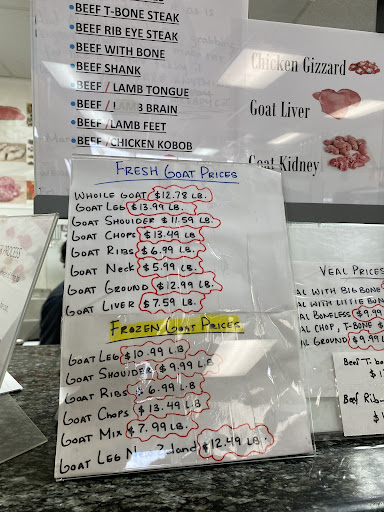 •BEEF T-BONE STEAK
•BEEF RIB EYE STEAK
•BEEF WITH BONE
•BEEF SHANK
•BEEF / LAMB TONGUE
•BEEF / LAMB BRAIN
•BEEF /LAMB FEET
•BEEF /CHICKEN KOBOB
Chicken Gizzard
Goat Liver
Goat Kidney
FRESH GOAT PRICES
WHOILE GOAT $12.78 LB.
GOAT LEG $13.99 LB.
GOAT SHOULDER $11.59 LB
GOAT CHOPS $13.49 LB
GOAT RIBS $6.99 LB.
GOAT NECK $5.99 LB.
GOAT GROUND $12.99 LB.
GOAT LIVER $7.59 LB.
FROZEN GOAT PRICES
GOAT LEG $10.99 LB
GOAT SHOULDER $9.99 LB
GOAT RIBS $6.99 LB
GOAT CHOPS $13.49 LB
GOAT MIX $7.99 LB.
GOAT LEG $12.49 LB.
VEAL PRICES
AL WITH BIG BONE
AL WITH LITTLE BON
AL BONELESS $9.99
AL CHOP, T-BONE $
AL GROUND $9.99
Beef T. bo
$1
Beef Rib
$1